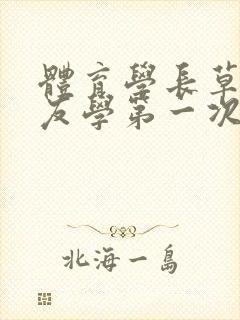 體育學長草
友學第一次
北海一島